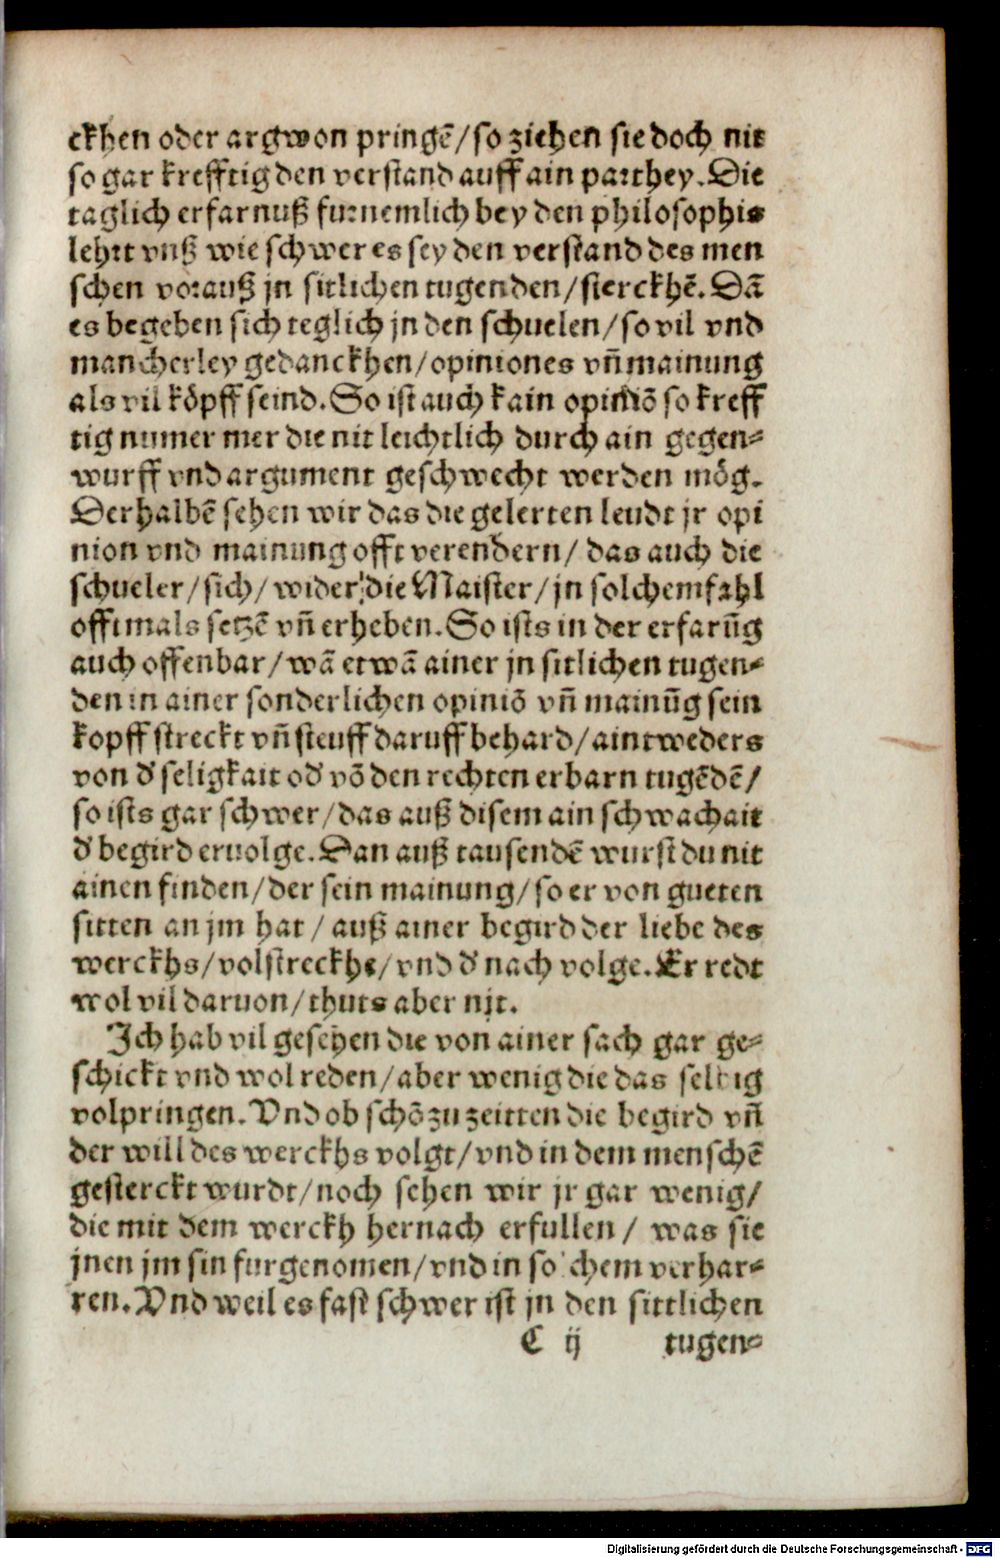 ckhen oder argwon pringē/so ziehen sie doch nit
so gar krefftig den verstand auff ain parthey. Die
taglich erfarnuß furnemlich bey den philosophis
lehrt vnß wie schwer es sey den verstand des men
schen vorauß jn sitlichen tugenden/sterckhē. Dā
es begeben sich teglich jn den schuelen/so vil vnd
mancherley gedanckhen/opiniones vñ mainung
als vil köpff seind. So ist auch kain opiniō so kreff
tig numer mer die nit leichtlich durch ain gegen-
wurff vnd argument geschwecht werden mög.
Derhalbē sehen wir das die gelerten leudt jr opi
nion vnd mainung offt verendern/ das auch die
schueler/sich/wider die Maister/jn solchem fahl
offtmals setzē vñ erheben. So ists in der erfarūg
auch offenbar/wā etwā ainer jn sitlichen tugen-
den in ainer sonderlichen opiniō vñ mainūg sein
kopff streckt vñ steuff daruff behard/aintweders
von d' seligkait od' vō den rechten erbarn tugēdē/
so ists gar schwer/das auß disem ain schwachait
d' begird eruolge. Dan auß tausendē wurst du nit
ainen finden/der sein mainung/so er von gueten
sitten an jm hat / auß ainer begird der liebe des
werckhs/volstreckhe/vnd d' nach volge. Er redt
wol vil daruon/thuts aber nit.
Ich hab vil gesehen die von ainer sach gar ge-
schickt vnd wol reden/aber wenig die das selbig
volpringen. Vnd ob schō zu zeitten die begird vñ
der will des werckhs volgt/vnd in dem menschē
gesterckt wurdt/noch sehen wir jr gar wenig/
die mit dem werckh hernach erfullen/ was sie
jnen jm sin furgenomen/vnd in solchem verhar-
ren. Vnd weil es fast schwer ist jn den sittlichen
C ij tugen-
Digitalisierung gefördert durch die Deutsche Forschungsgemeinschaft - DFG